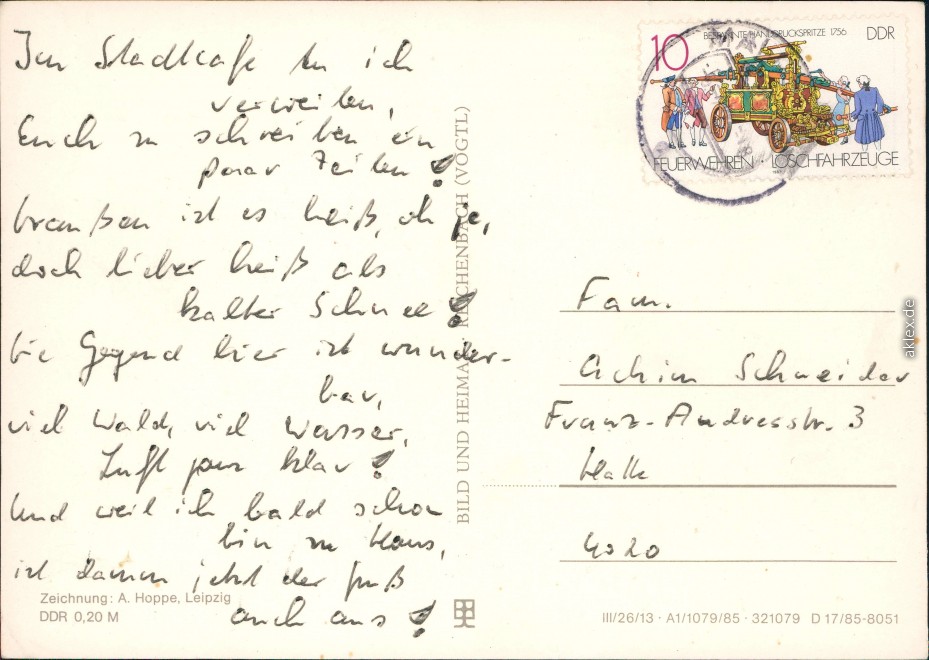 Im Stadtkafe tu ich
verweilen,
Euch zu schreiben ein
paar Zeilen!
Draußen ist es heiß, oh je,
doch lieber heiß als
kalter Schnee!
Die Gegend hier ist wunder-
bar,
viel Wald, viel Wasser,
Luft pur klar!
Und weil ich bald schon
bin zu Haus,
ist darum jetzt der Gruß
auch aus!
Zeichnung: A. Hoppe, Leipzig
DDR 0,20 M
BILD UND HEIMAT REICHENBACH (VOGTL)
10
BESPANNTE HANDDRUCKSPRITZE 1756
DDR
FEUERWEHREN · LÖSCHFAHRZEUGE
Fam.
Achim Schneider
Franz-Andresstr. 3
Halle
4020
III/26/13 · A1/1079/85 · 321079 D 17/85-8051
aklex.de